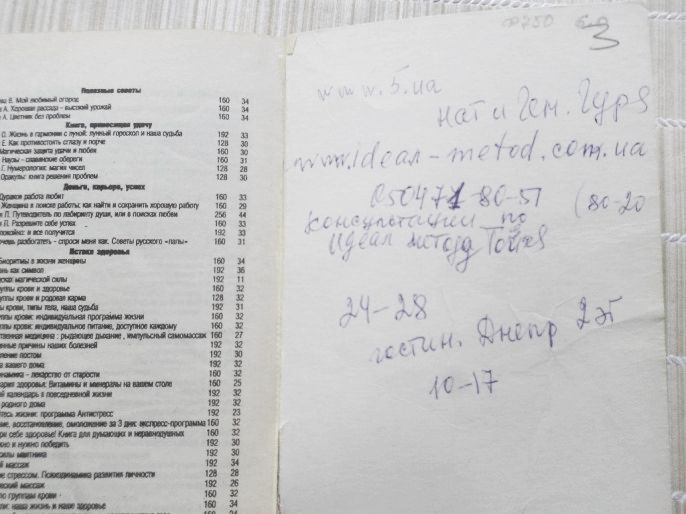 Полезные советы
Е. Мой любимый огород 160 34
А. Хорошая рассада – высокий урожай 160 34
А. Цветник без проблем 160 34
Книга, приносящая удачу
О. Жизнь в гармонии с луной: лунный гороскоп и наша судьба 192 33
Е. Как противостоять сглазу и порче 128 30
Магическая защита удачи и любви 160 30
Наузы - славянские обереги 160 31
Г. Нумерология: магия чисел 128 28
Оракулы: книга решения проблем 128 30
Деньги, карьера, успех
Дураков работа любит 160 33
Женщина в поиске работы: как найти и сохранить хорошую работу 160 29
Л. Путеводитель по лабиринту души, или в поисках любви 256 44
Л. Разрешите себе успех 160 33
и все получится 192 33
разбогатеть - спроси меня как. Советы русского «папы» 160 31
Истоки здоровья
Биоритмы в жизни женщины 160 34
как символ 192 36
магической силы 192 11
крови и здоровье 160 32
крови и родовая карма 128 32
крови, типы тела, наша судьба 192 31
крови: индивидуальная программа жизни 160 32
крови: индивидуальное питание, доступное каждому 160 32
медицина: рыдающее дыхание, импульсный самомассаж 160 27
причины наших болезней 192 32
постом 192 30
вашего дома 192 32
- лекарство от старости 160 32
здоровья: Витамины и минералы на вашем столе 160 25
календарь в повседневной жизни 192 32
родного дома 192 32
жизни: программа Антистресс 192 23
восстановление, омоложение за 3 дня: экспресс-программа 160 32
себе здоровье! Книга для думающих и неравнодушных 192 32
и нужно победить 192 30
маятника 192 30
массаж 192 34
стрессом. Психодинамика развития личности 128 28
массаж 192 26
по группам крови 160 32
наша жизнь и наше здоровье 160 34
3
www.5.ua
нат и Ген.
www.ideal-metod.com.ua
050471-80-51 (80-20
Консультации по
Идеал методу
24-28
гостин. Днепр 2 эт
10-17